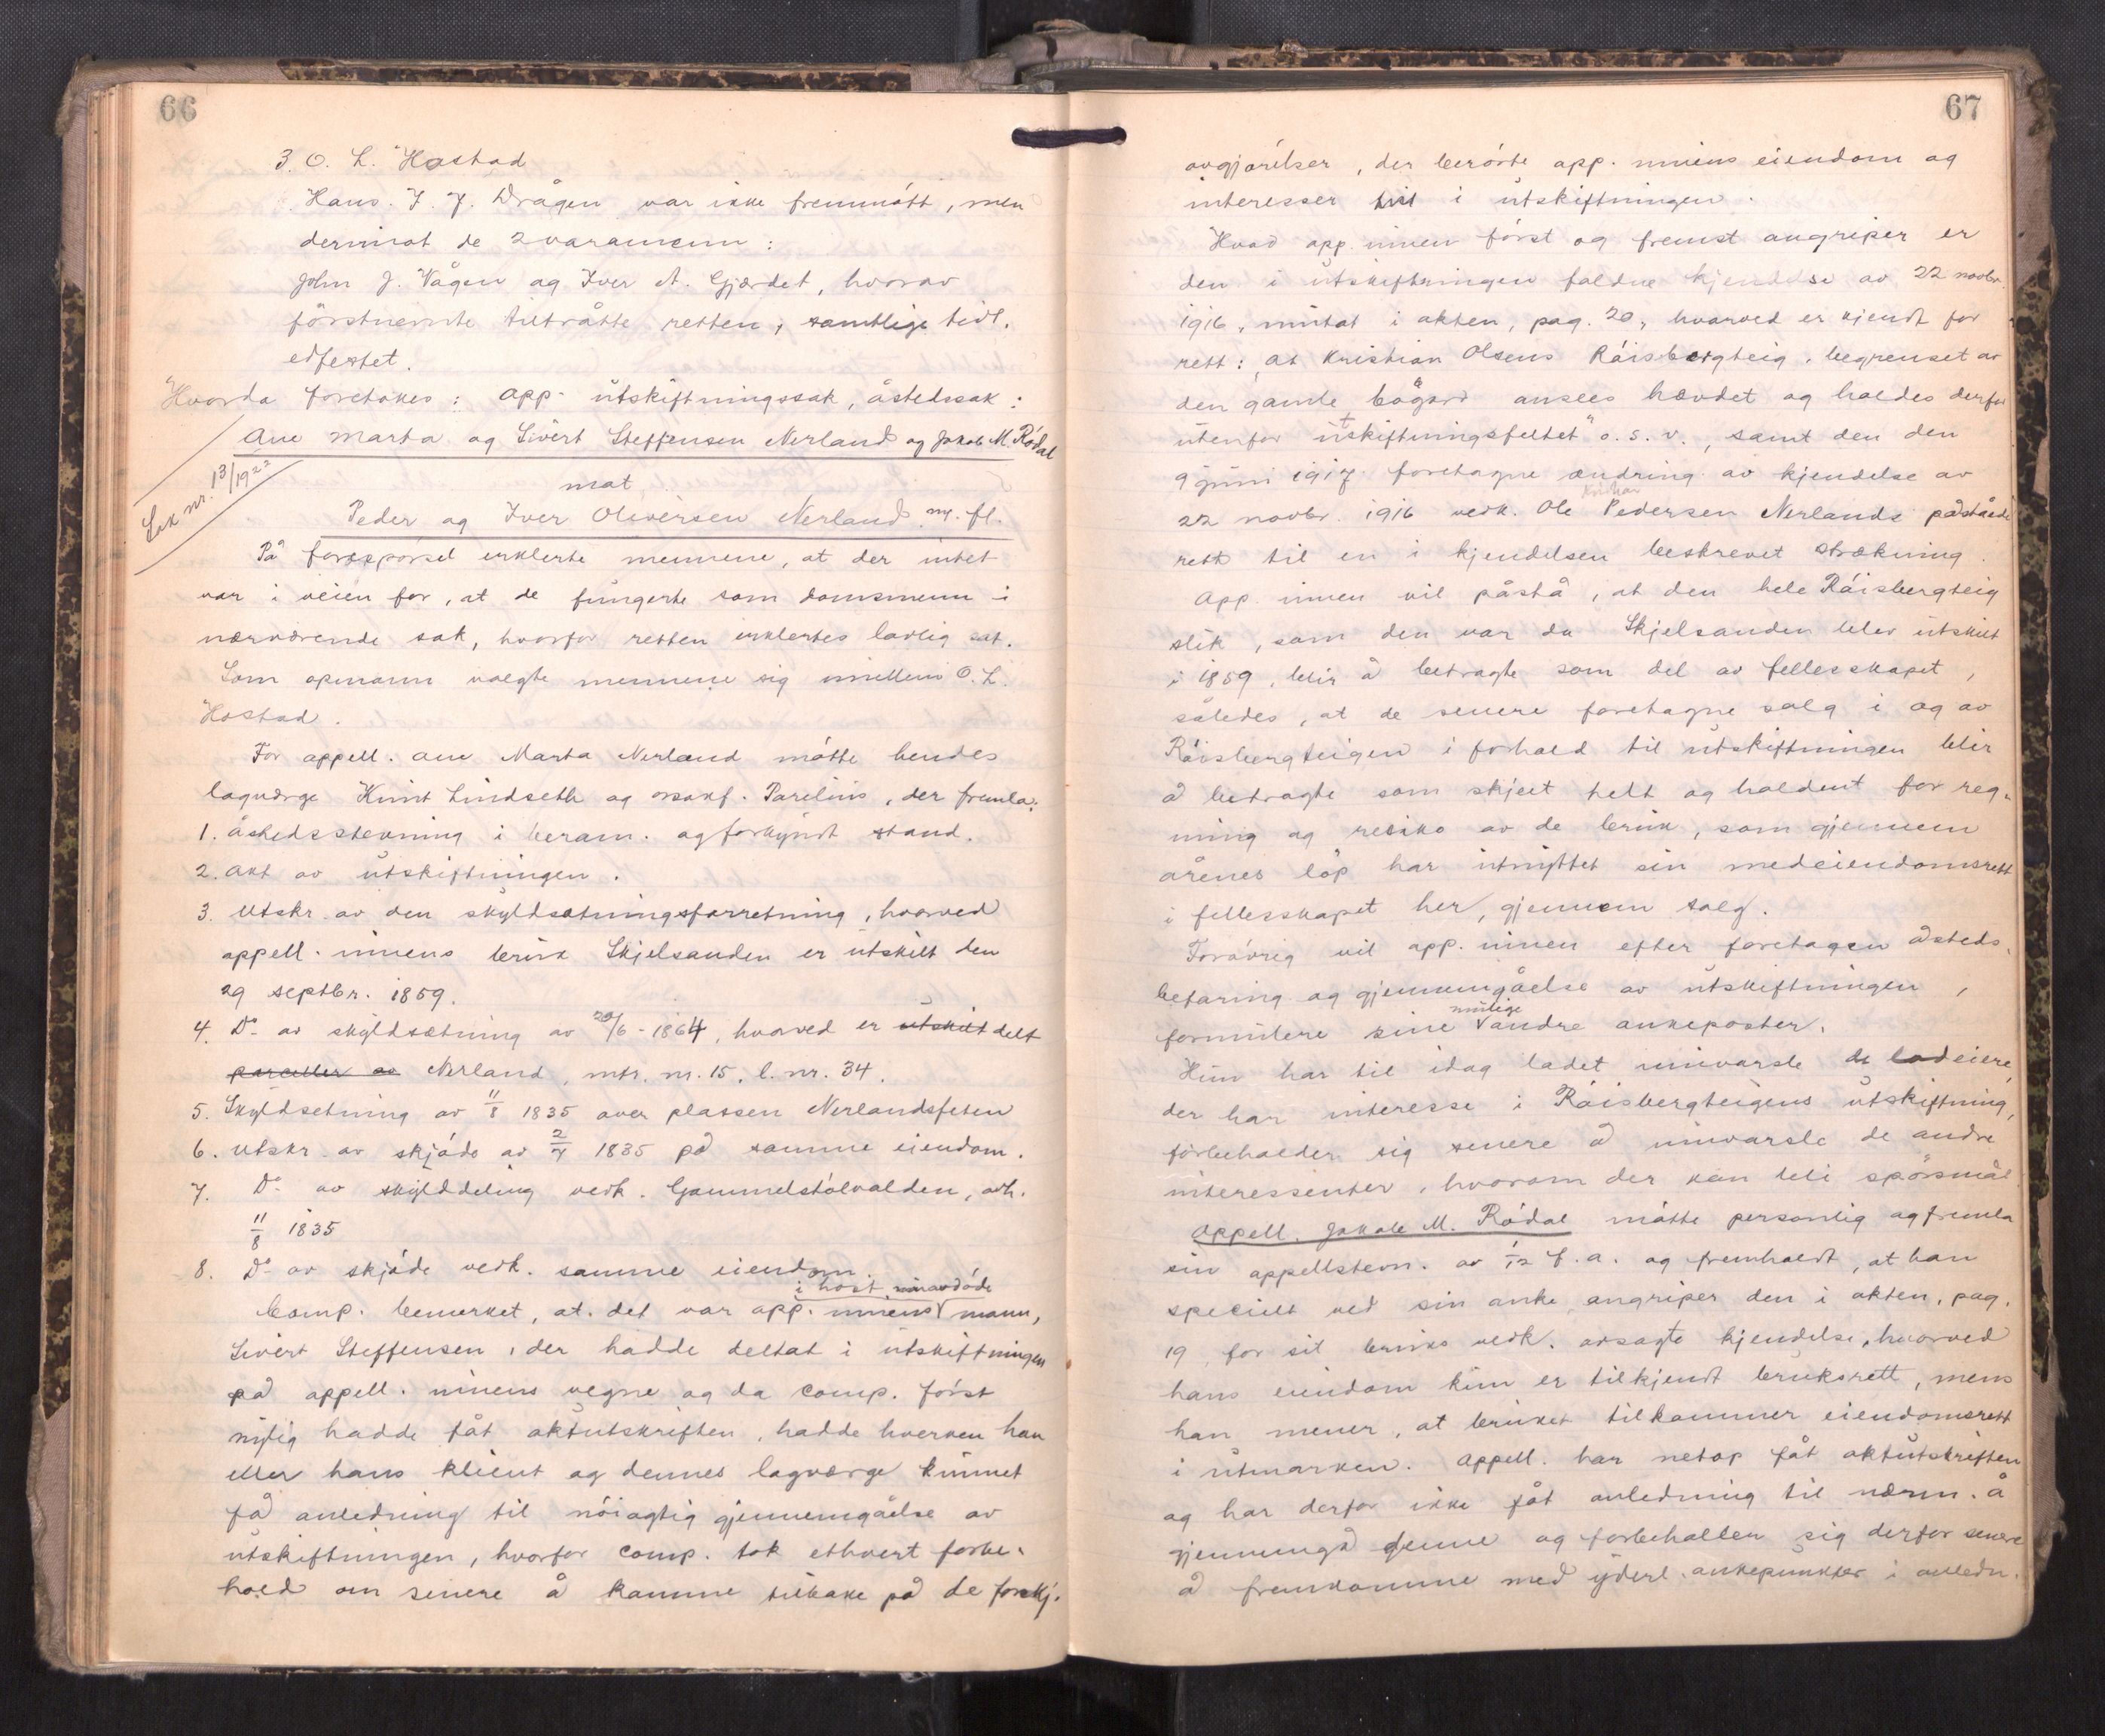 66
3. O. L. Hostad
Hans J. J. Drågen var ikke fremmótt, men
derimot de 2 varamenn:
John J. Vågen og Iver A. Gjærdet, hvorav
förstnevnte tiltråtte retten, samtlige tidl.
edfestet.
Hvorda foretokes: app. utskiftningssak, åstedssak:
Ane Marta og Sivert Steffensen Nerland og Jakob M. Ródal
Sak nr. 13/1922
mot
Peder og Iver Oliversen Nerland m. fl.
På forespórsel erklerte mennene, at der intet
var i veien for, at de fungerte som domsmenn i
nærværende sak, hvorfor retten erklertes lovlig sat.
Som opmann valgte mennene sig imellem O. L.
Hostad.
For appell. Ane Marta Nerland mótte hendes
lagværge Knut Lindseth og o.r.sakf. Parelius, der fremla:
1. åstedsstevning i beram. og forkyndt stand.
2. akt av utskiftningen.
3. Utskr. av den skyldsætningsforretning, hvorved
appell. innens bruk Skjelsanden er utskilt den
29 septbr. 1859.
4. Do av skyldsætning av 20/6 - 1864, hvorved er utskilt delt
parceller av Nerland, mtr. nr. 15, l. nr. 34.
5. Skyldsetning av 11/8 1835 over plassen Nerlandsfeten
6. Utskr. av skjóde av 2/7 1835 på samme eiendom.
7. Do av skylddeling vedk. Gammelstólvolden, avh.
11/8 1835
8. Do av skjóde vedk. samme eiendom.
Comp. bemerket, at det var app. innens i host avdóde mann,
Sivert Steffensen, der hadde deltat i utskiftningen
på appell. innens vegne og da comp. fórst
nylig hadde fåt aktutskriften, hadde hverken han
eller hans klient og dennes lagværge kunnet
få anledning til nóiagtig gjennemgåelse av
utskiftningen, hvorfor comp. tok ethvert forbe-
hold om senere å komme tilbake på de forskj.
67
avgjórelser, der berórte app. innens eiendom og
interesser i utskiftningen.
Hvad app. innen fórst og fremst angriper er
den i utskiftningen faldne kjendelse av 22 novbr.
1916, inntat i akten, pag. 20, hvorved er kjendt for
rett: "at Kristian Olsens Róisbergteig, begrenset av
den gamle bögard ansees hævdet og holdes derfor
utenfor utskiftningsfeltet" o. s. v., samt den den
9 juni 1917 foretagne ændring av kjendelse av
22 novbr. 1916 vedk. Ole Kristian Pedersen Nerlands påståede
rett til en i kjendelsen beskrevet strækning.
App. innen vil påstå, at den hele Róisbergteig
slik, som den var da Skjelsanden blev utskilt
i 1859, blir å betragte som del av fellesskapet,
således, at de senere foretagne salg i og av
Róisbergteigen i forhold til utskiftningen blir
å betragte som skjeet helt og holdent for reg-
ning og resiko av de bruk, som gjennem
årenes lóp har utnyttet sin medeiendomsrett
i fellesskapet her, gjennem salg.
Foróvrig vil app. innen efter foretagen åsteds-
befaring og gjennemgåelse av utskiftningen,
formulere sine mulige andre ankeposter.
Hun har til idag ladet innvarsle de lodeiere,
der har interesse i Róisbergteigens utskiftning,
forbeholder sig senere å innvarsle de andre
interessenter, hvorom der kan bli spórsmål.
Appell. Jakob M. Ródal mótte personlig og fremla
sin appellstevn. av 1/12 f. a. og fremholdt, at han
specielt ved sin anke angriper den i akten, pag.
19, for sit bruks vedk. avsagte kjendelse, hvorved
hans eiendom kun er tilkjendt bruksrett, mens
han mener, at bruket tilkommer eiendomsrett
i utmarken. Appell. har netop fåt aktutskriften
og har derfor ikke fåt anledning til nærm. å
gjennemgå denne og forbeholder sig derfor senere
å fremkomme med yderl. ankepunkter i anledn.